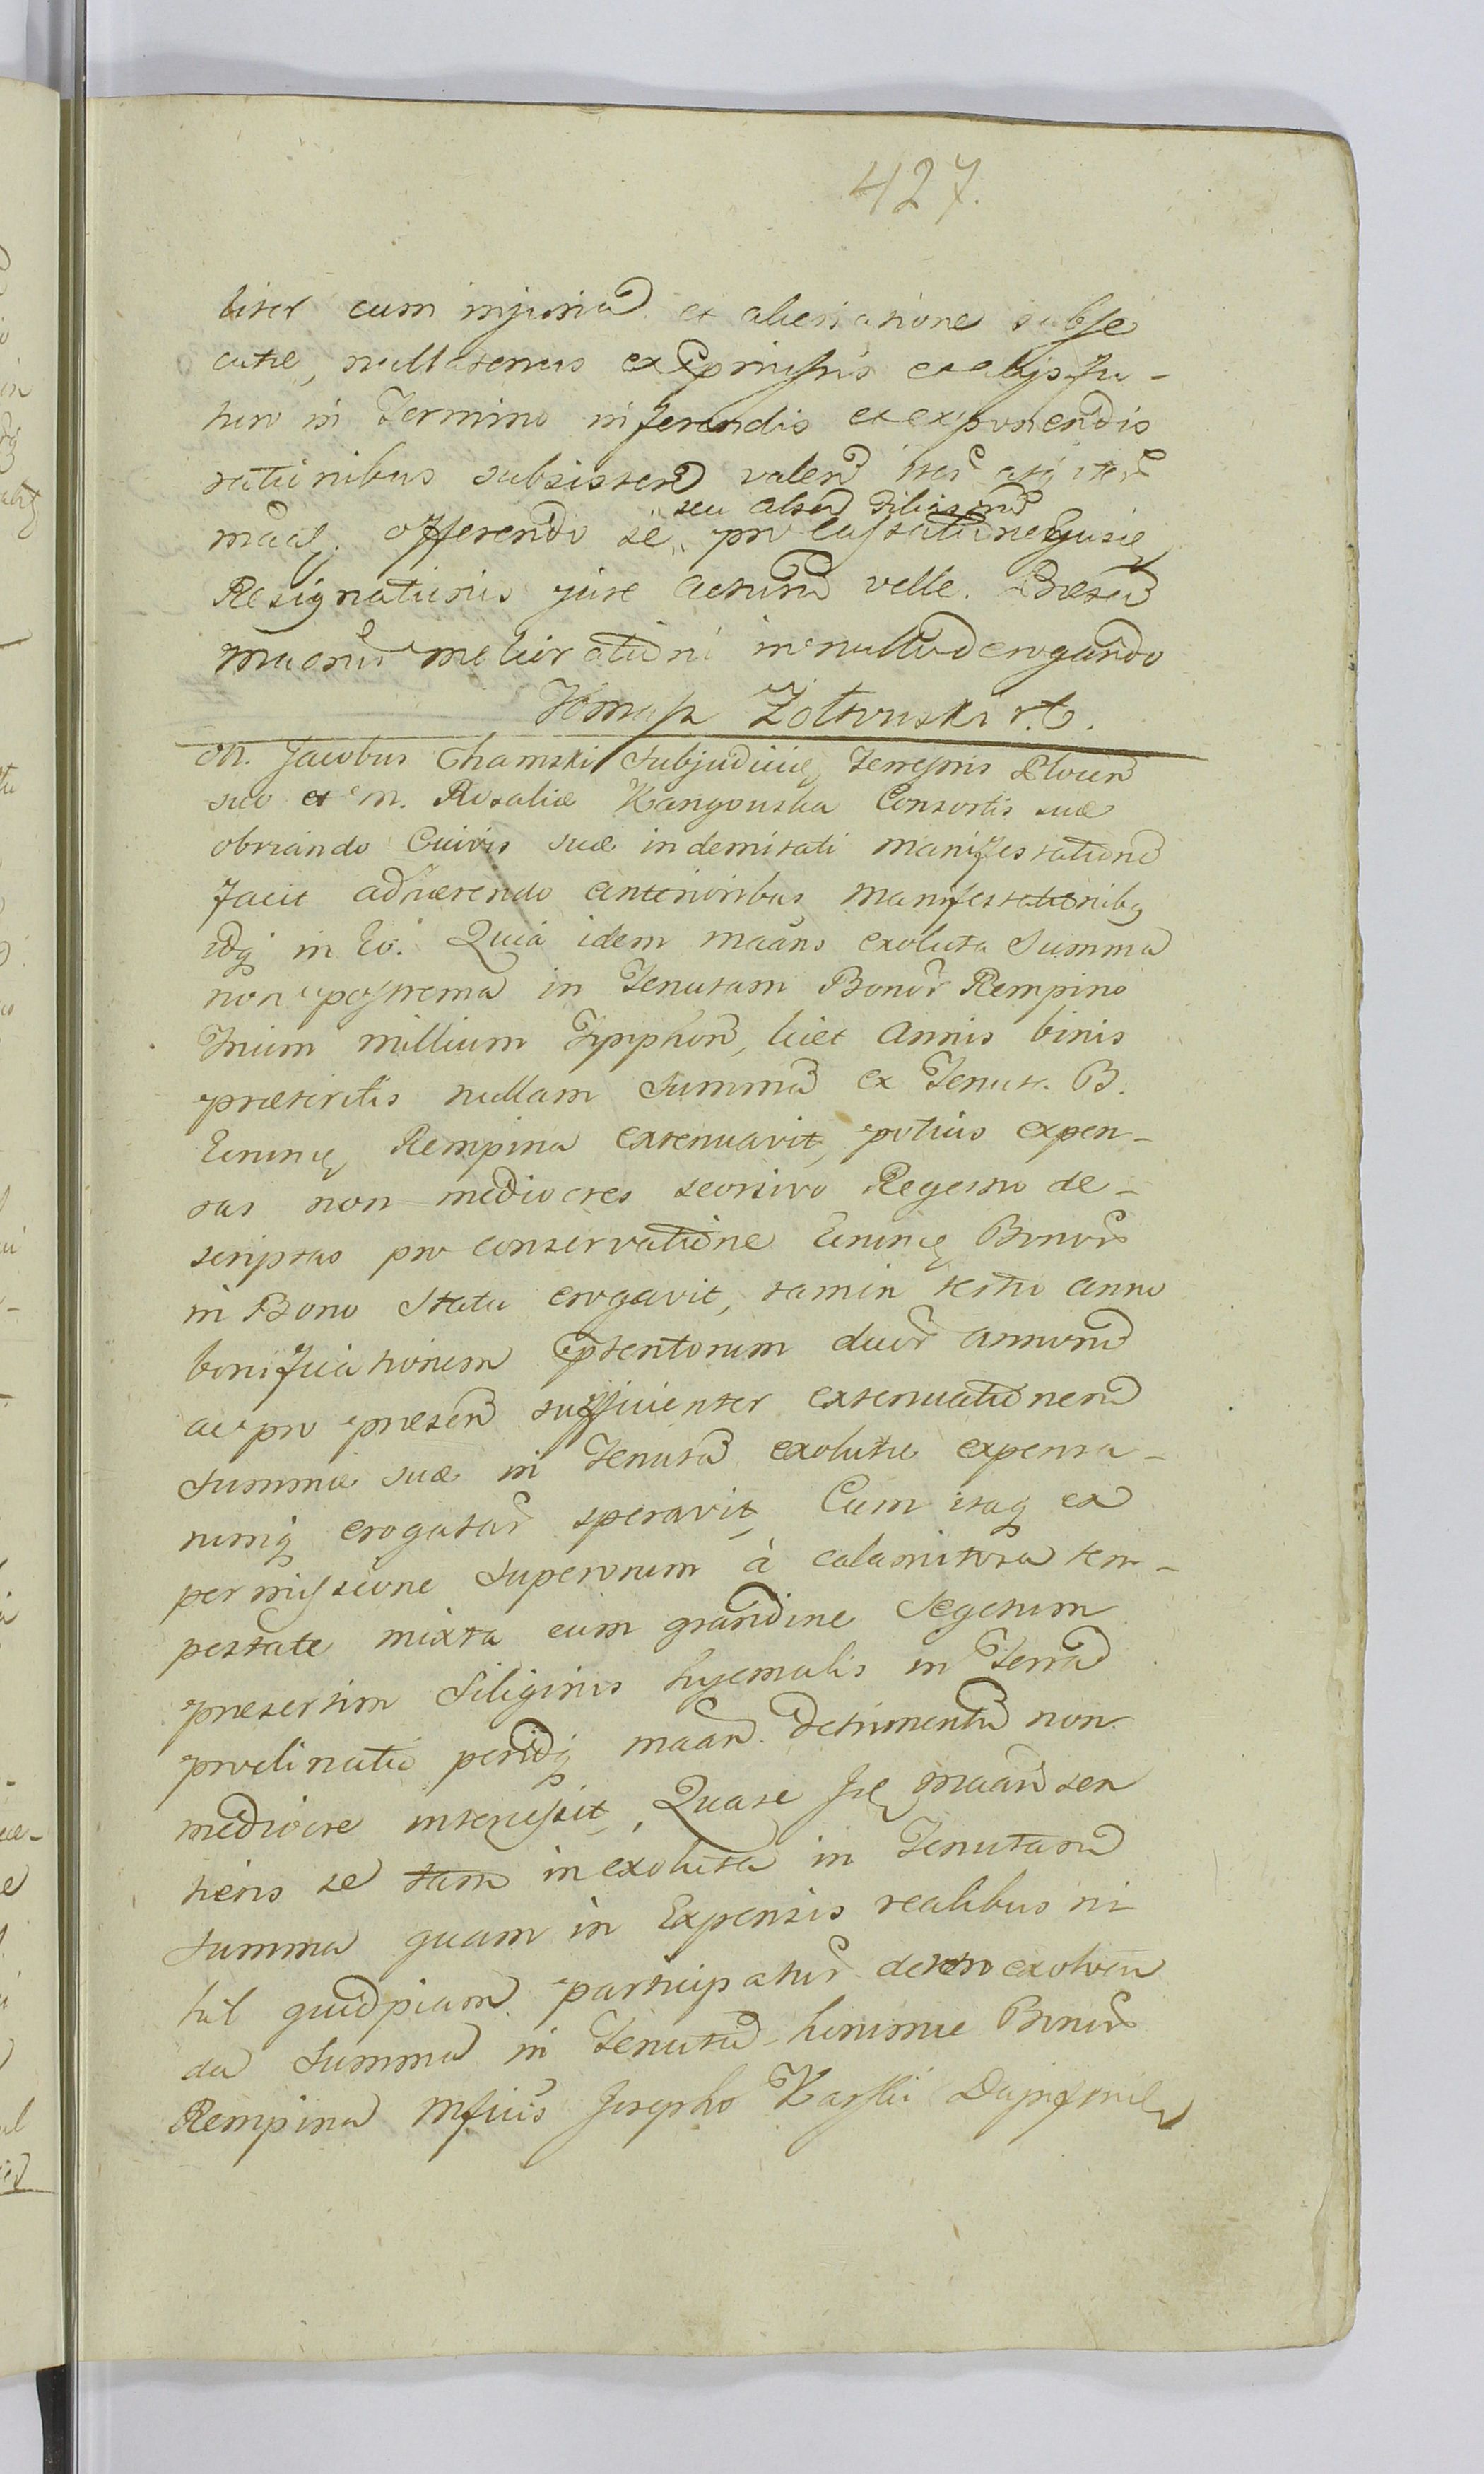 427.
liter cum injuria et alienatione subse
cutae, nullatenus ex praemissis et alijs fu-
turo in Termino inferendis et exponendis
rationibus subsistere valere iter. atq iter.
maãl. offerendo se pro cassatione ejusd
seu alsed
Resignationis jure acturu velle.
meliorationi in nullo derogando
Żółtowski
M. Jacobus Chamski Subjudicie Terrestris Plocen
suo et M. Rosaliae Consortis suae
obviando Cuivis suae indemitati manifestatione
facit adhaerendo anterioribus manifestationibq
idq in Eo. Quia idem maãns exoluta Summa
non postrema in Tenutam Bonor Rempino
Trium millium Tipphor, licet Annis binis
praeteritis nullam Summa ex Tenuta B.
Eorund Rempina extenuavit, potius expen-
sas non mediocres seorsivo Regestro de-
scriptas pro conservatione Eorund Bonor
in Bono Statu erogavit, tamen tertio anno
bonificationem ptentorum duor annoru
ac pro praesen sufficienter extenuationem
Summae suae in Tenuta exolutae expensa-
rumq erogatar speravit, Cum itaq ex
permissione Superorum à calamitosa tem-
pestate mixta cum grandine Segetum
praesertim Siliginis hyemalis in Terra
proclinatio peridq maãn. detrimentu non
mediocre intercessit, Quare Ide maãn sen
tiens se tam in exoluta in Tenutam
Summa quam in Expensis realibus ni
hil quidpiam participatur. de exolven
da Summa in Tenuta horumce Bonor
Rempina Mfico Josepho Karski Dapif